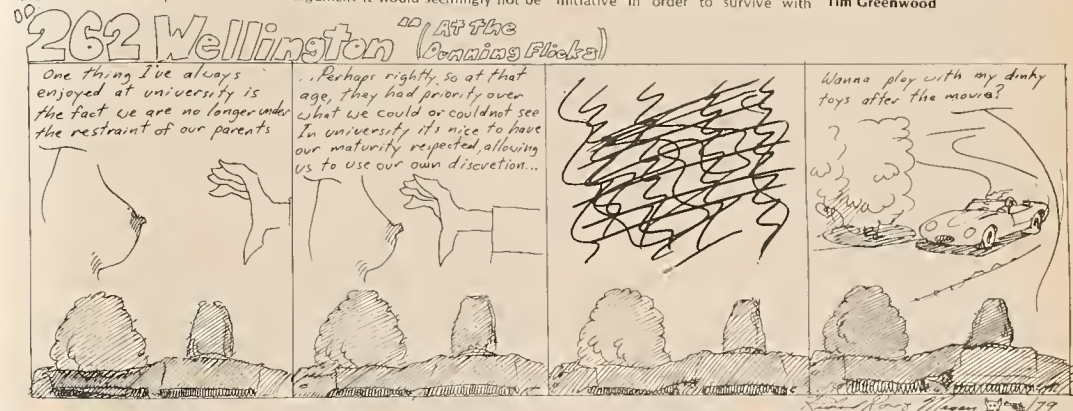 argument it would seemingly not be initiative in order to survive with Tim Greenwood
"262 Wellington" (At The Dunning Flicks)
One thing I've always
enjoyed at university is
the fact we are no longer under
the restraint of our parents
...Perhaps rightly so at that
age, they had priority over
what we could or could not see
In university its nice to have
our maturity respected, allowing
us to use our own discretion...
Wanna play with my dinky
toys after the movie?
/79